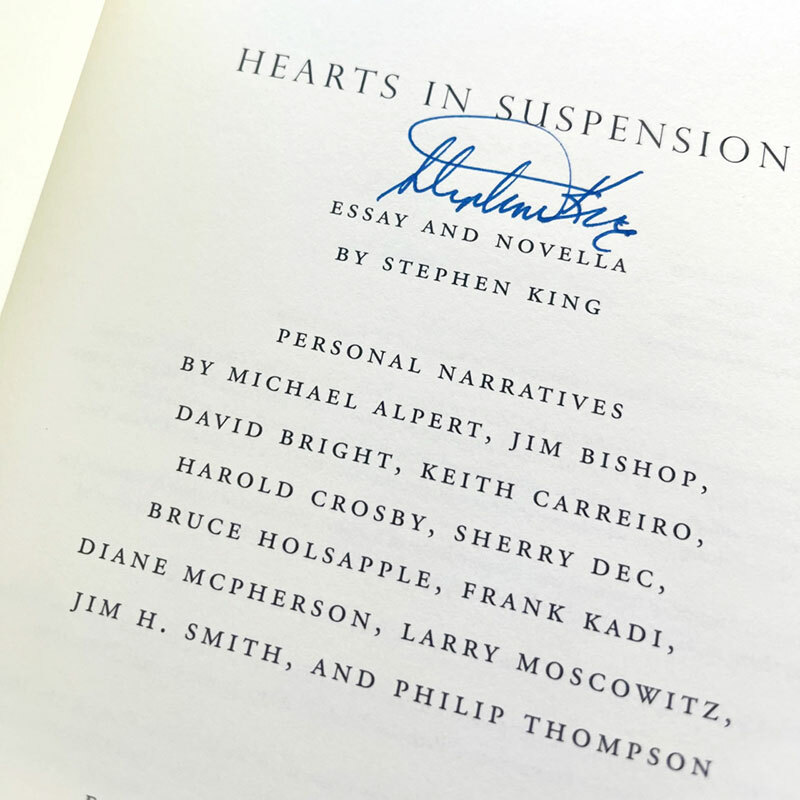 HEARTS IN SUSPENSION
Stephen King
ESSAY AND NOVELLA
BY STEPHEN KING
PERSONAL NARRATIVES
BY MICHAEL ALPERT, JIM BISHOP,
DAVID BRIGHT, KEITH CARREIRO,
HAROLD CROSBY, SHERRY DEC,
BRUCE HOLSAPPLE, FRANK KADI,
DIANE MCPHERSON, LARRY MOSCOWITZ,
JIM H. SMITH, AND PHILIP THOMPSON